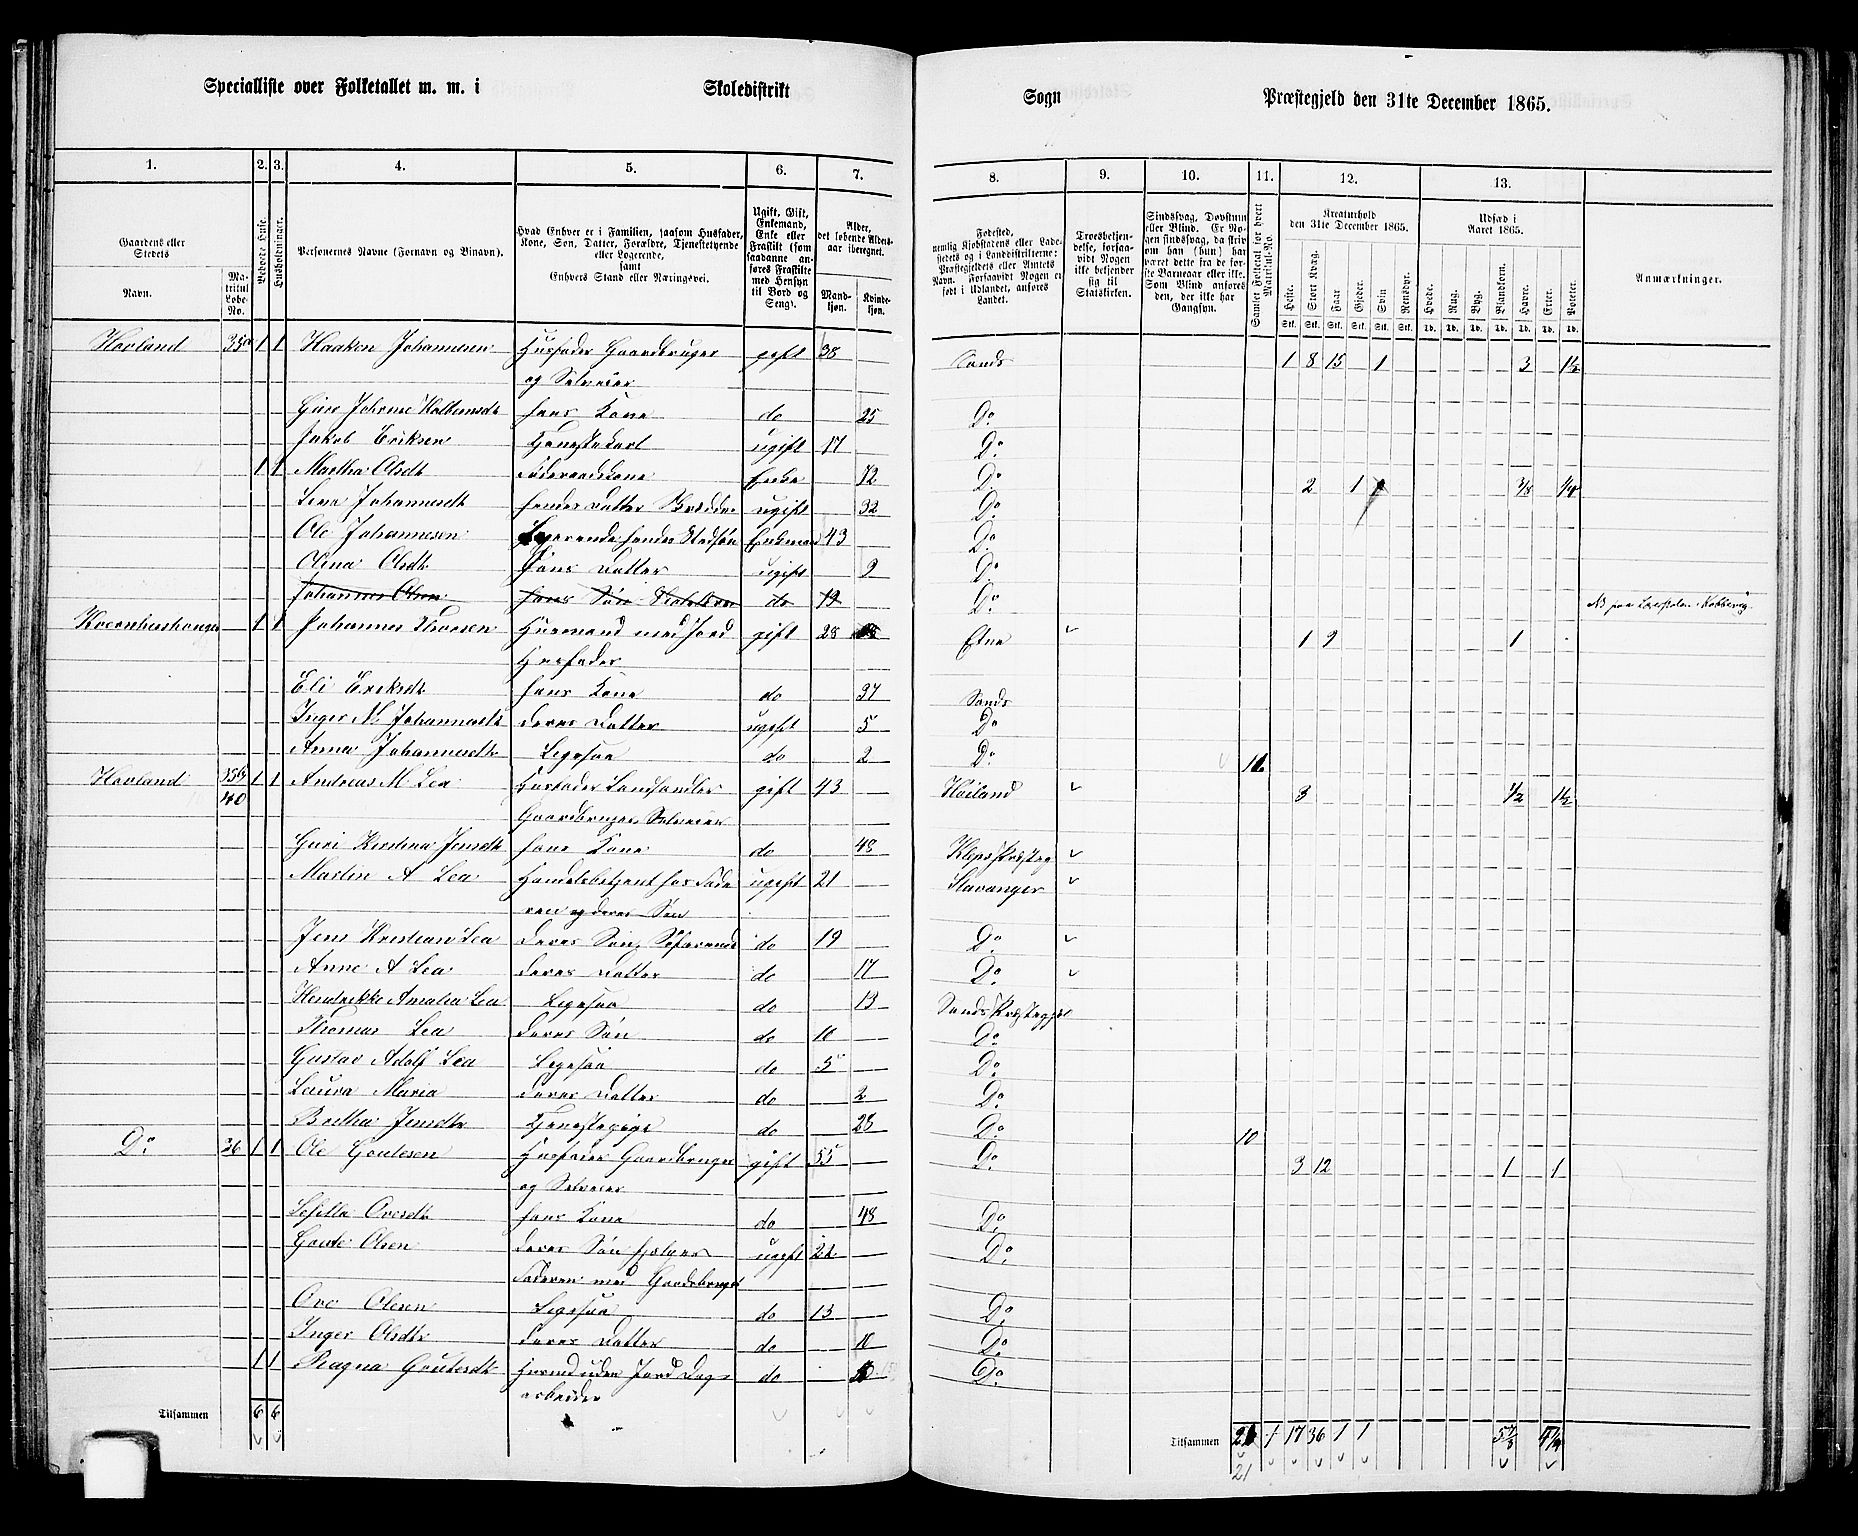 Specialliste over Folketallet m. m. i Skoledistrikt Sogn Præstegjeld den 31te December 1865.
1. 2. 3. 4. 5. 6. 7. 8. 9. 10. 11. 12. 13.
Gaardens eller Stedets
Navn.
Matrikul Løbe-No.
Beboede Huse.
Husholdninger.
Personernes Navne (Fornavn og Binavn).
Hvad Enhver er i Familien, saasom Husfader, Kone, Søn, Datter, Forældre, Tjenestetyende eller Logerende, samt Enhvers Stand eller Næringsvei.
Ugift, Gift, Enkemand, Enke eller Fraskilt (som saadanne anføres Fraskilte med Hensyn til Bord og Seng).
Alder, det løbende Aldersaar iberegnet.
Mandkjøn. Kvindekjøn.
Fødested, nemlig Kjøbstadens eller Ladestedets og i Landdistrikterne: Præstegjeldets eller Amtets Navn. Forsaavidt Nogen er født i Udlandet, anføres Landet.
Troesbekjendelse, forsaavidt Nogen ikke bekjender sig til Statskirken.
Sindssvag, Døvstum eller Blind. Er Nogen sindssvag, da skriv om han (hun) har været dette fra de første Barneaar eller ikke. Som Blind anføres den, der ikke har Gangsyn.
Samlet Folketal for hvert Matrikul-No.
Kreaturhold den 31te December 1865.
Heste. Stort Kvæg. Faar. Gjeder. Svin. Rensdyr.
Udsæd i Aaret 1865.
Hvede. Rug. Byg. Blandkorn. Havre. Erter. Poteter.
Anmærkninger.
Hovland 35a 1 1 Haaken Johannesen Husfader Gaardbruger gift 38 Sands 1 8 15 1 3 1½
og Selveier
Johnne hans Kone do 25 Do
Jakob Eriksen ugift 17 Do
1 1 Martha Olsdt Føderaadskone Enke 72 Do 2 1 3/8 1/4
Lene Johannesdt hendes Datter ugift 32 Do
Ole Johannesen Logerende hendes Enkmand 43 Do
Olena Olsdt Hans Datter ugift 9 Do
Johannes Olsen hans Søn do 13 Do
1 1 Johannes Husmand med Jord gift 28 Etne 1 9 1
Husfader
Eli Eriksdt hans Kone do 37 Sands
Inger M Johannesdt deres Datter ugift 5 Do
Anna Johannesdt Ligesaa do 2 Do
Hovland 35b 1 1 Andreas M. Lea Husfader Landhandler gift 43 Høiland 3 1/2 1½
40 Gaardbruger Selveier
Guri Jensdt hans Kone do 48
Martin A Lea Handelsbetjent hos Fade ugift 21 Stavanger
ren og deres Søn
Jens Kristian Lea deres Søn, Søfarende do 19 Do
Anne A Lea deres Datter do 17 Do
Hendrikke Amalia Lea Ligesaa do 13 Sands Præstegjel
Thomas Lea deres Søn do 10 Do
Gustav Adolf Lea Ligesaa do 5 Do
Laura Maria deres Datter do 2 Do
Jensdtr Tjenestepige do 23 Do 10
Do 36 1 1 Ole Goutesen Husfader Gaardbruger gift 55 Do 3 12 1 1
og Selveier
Ovesdt hans Kone do 48 Do
Goute Olsen deres Søn hjelper ugift 22 Do
Faderen med Gardsbruget
Ove Olesen Ligesaa do 13 Do
Inger Olsdtr deres Datter do 10 Do
1 1 Ragna Goutesdt uden Jord Dag- do Do
arbeider
Tilsammen 6 6 Tilsammen 1 17 36 1 1
21